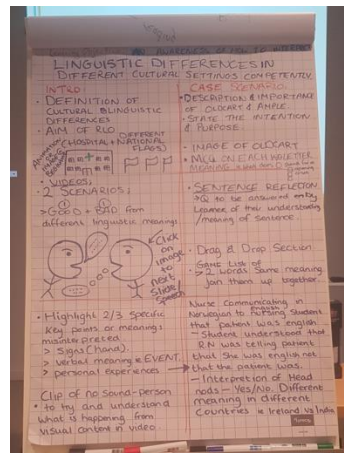 AN AWARENESS OF HOW TO INTERPRET
LINGUISTIC DIFFERENCES IN
DIFFERENT CULTURAL SETTINGS COMPETENTLY.
INTRO:
• DEFINITION OF
CULTURAL & LINGUISTIC
DIFFERENCES
• AIM OF RLO
(HOSPITAL + DIFFERENT
NATIONAL
FLAGS)
• VIDEOS;
2 SCENARIOS;
> GOOD + BAD from
different linguistic meanings
Click
on
image
to
next
slide/
speech
• Highlight 2/3 specific
key points or meanings
misinterpreted
> Signs (hand)
> verbal meaning & EVENT.
> personal experiences
Clip of no Sound-person
• to try and understand
what is happening from
visual content in video.
CASE SCENARIO.
• DESCRIPTION & IMPORTANCE
OF OLDCART & AMPLE.
• STATE THE INTENTION
& PURPOSE.
• IMAGE OF OLDCART
• MCQ ON EACH LETTER
MEANING
• SENTENCE REFLECTION
→ Q to be answered entry
Learner of their understanding
/ meaning of sentence.
• Drag & Drop Section
Game List of
> 2 words Same meaning
join them up together.
Nurse communicating in
Norwegian to nursing Student
english
that patient was english
- Student understood that
RN was telling patient
that she was english not
that the patient was.
- Interpretation of Head
nods - Yes/No. Different
meaning in different
Countries ie Ireland Vs India